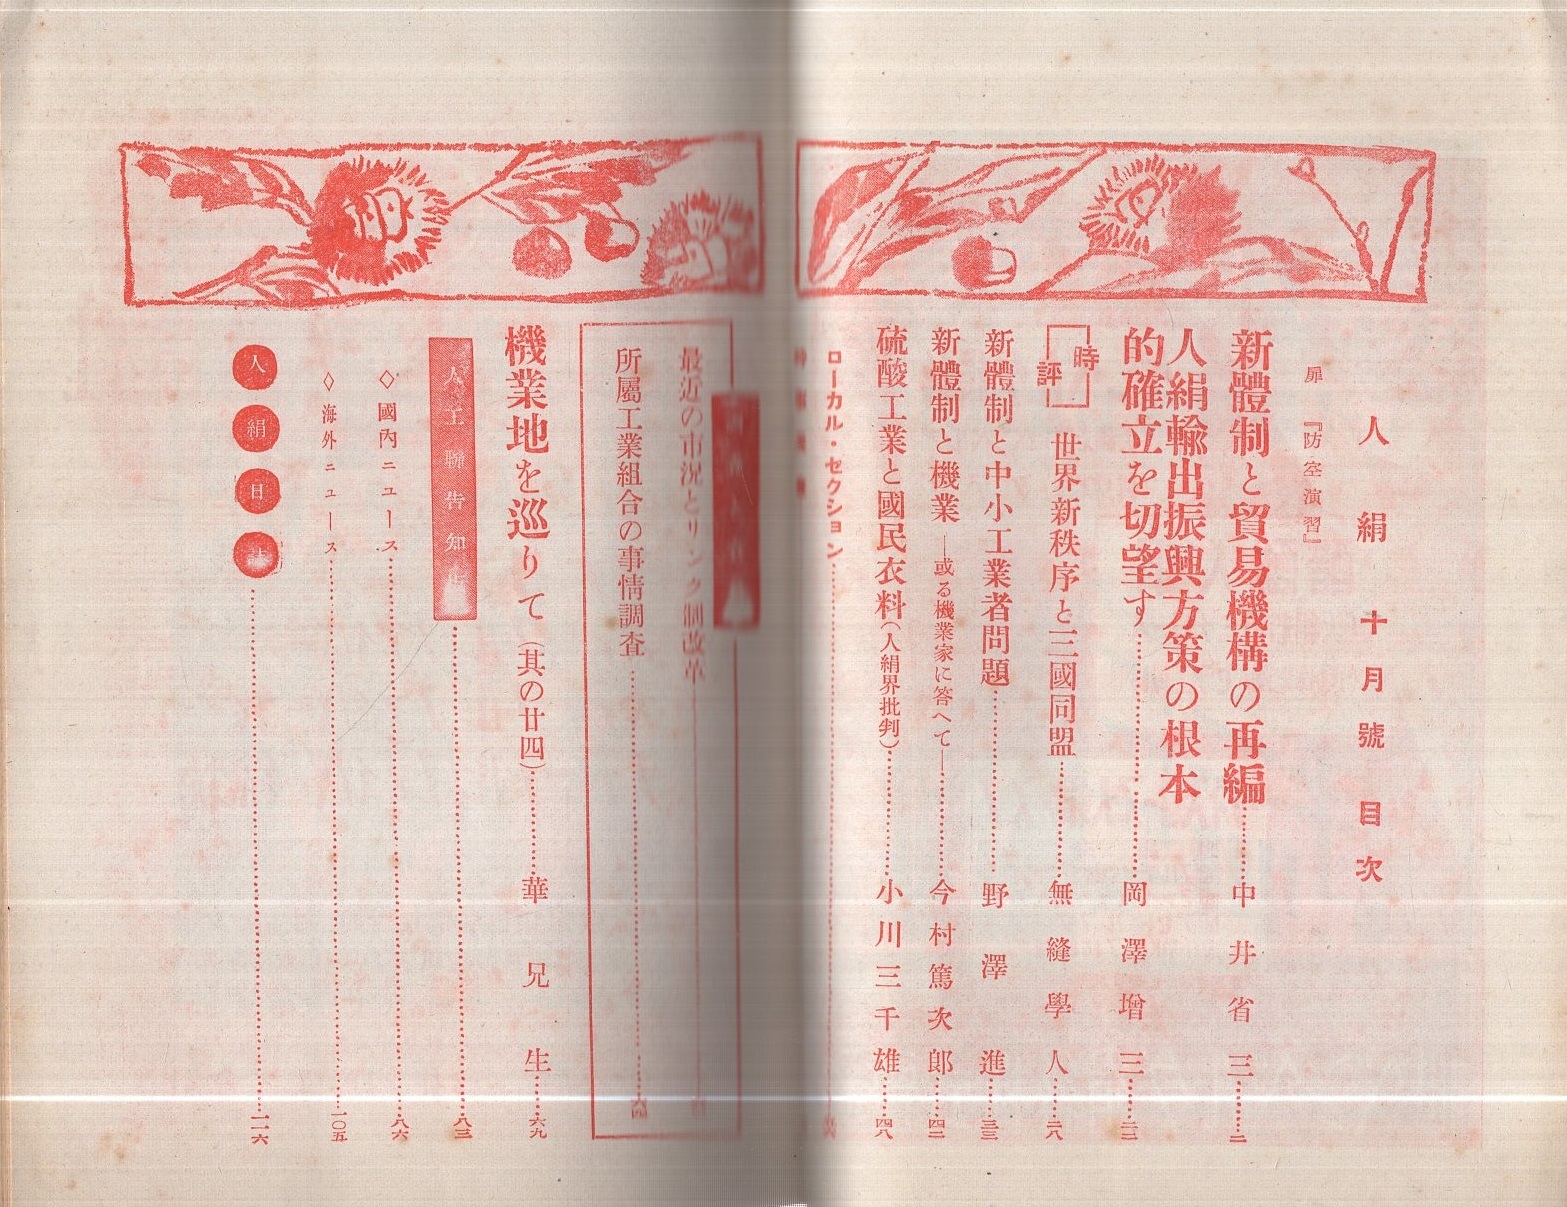 人絹 十月號 目次
扉 『防空演習』
新體制と貿易機構の再編………中井省三………二
人絹輸出振興方策の根本
的確立を切望す………岡澤增三………二二
時評 世界新秩序と三國同盟………無縫學人………二八
新體制と中小工業者問題………野澤進………三三
新體制と機業 ―或る機業家に答へて―………今村篤次郎………四二
硫酸工業と國民衣料（人絹界批判）………小川三千雄………四八
ローカル・セクション………
最近の市況とリンク制改革………
所屬工業組合の事情調査………六四
機業地を巡りて（其の廿四）………華兄生………六九
人工聯告知………八三
◇國內ニュース………八六
◇海外ニュース………一〇五
人絹日誌………一一六